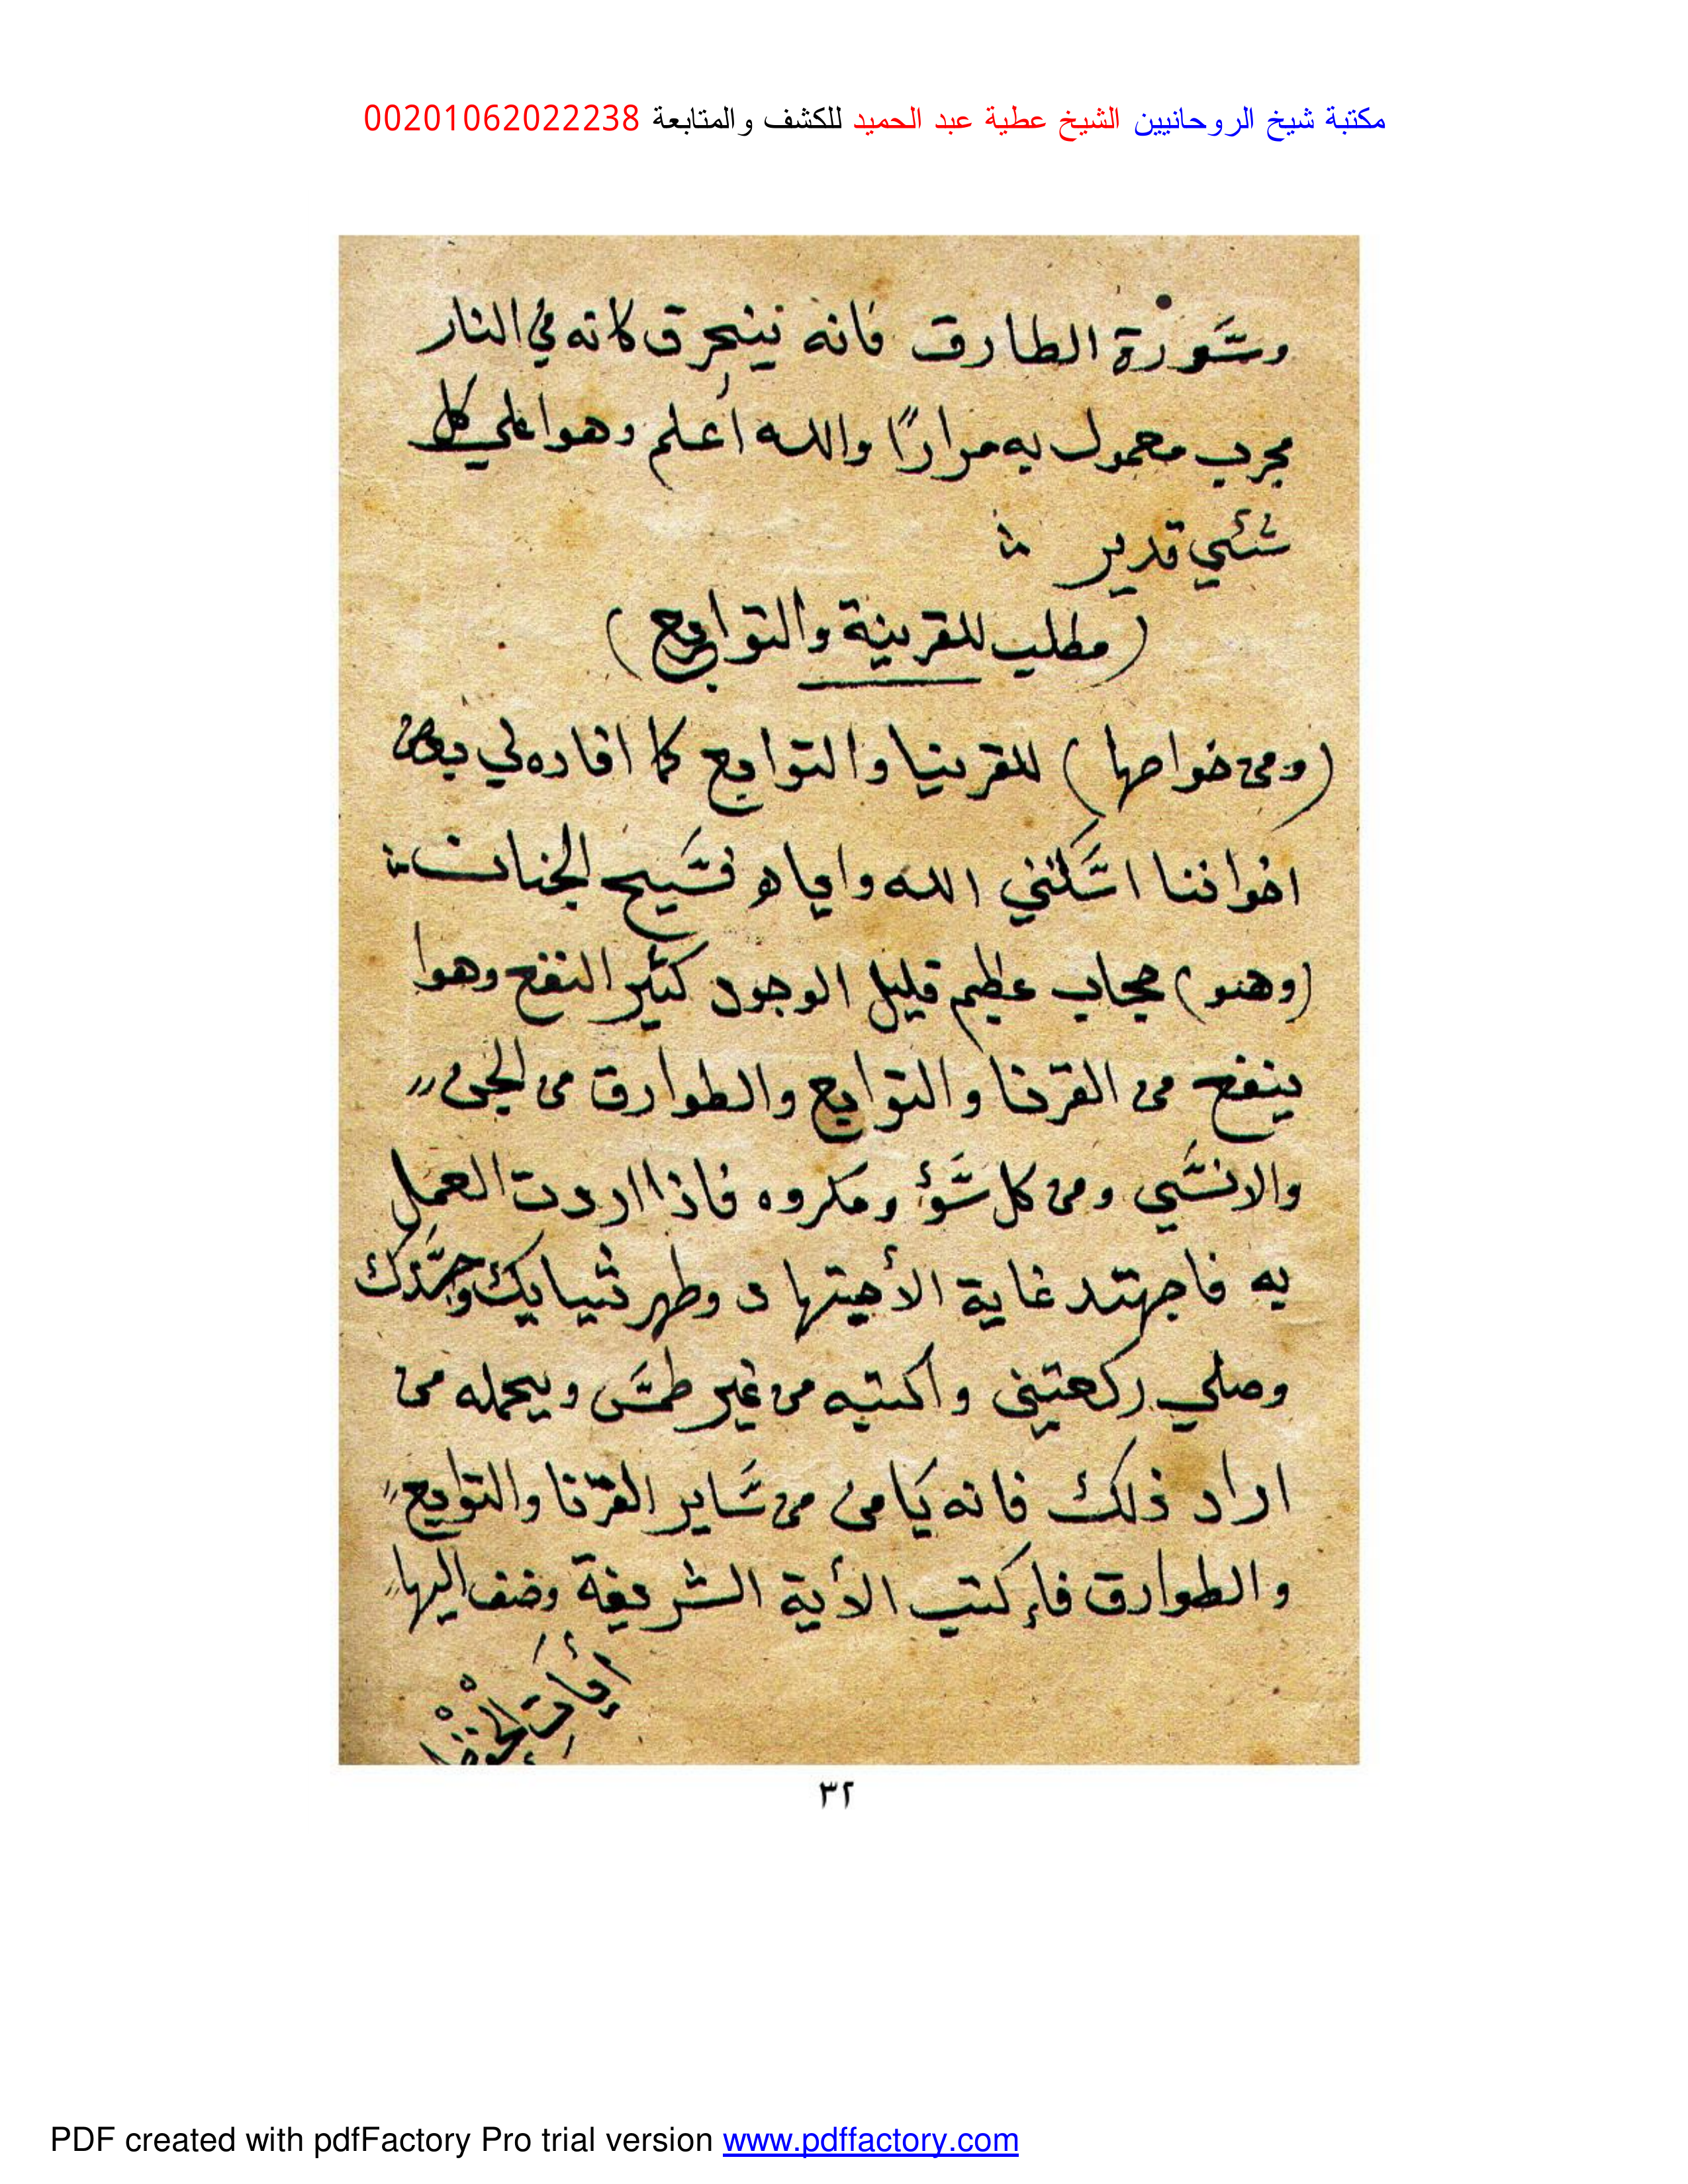 مكتبة شيخ الروحانيين الشيخ عطية عبد الحميد للكشف والمتابعة 00201062022238
وسورة الطارق فانه ينحرق كانه في النار
مجرب معمول به مرارًا والله أعلم وهوا علي كل
شئي قدير
(مطلب للقرينة والتوابع)
(ومن خواصها) للقرنيا والتوابع كما افاده لي بعض
اخواننا اسكنني الله واياه فسيح الجنات
(وهو) حجاب عظيم قليل الوجود كثير النفع وهوا
ينفع من القرنا والتوابع والطوارق من الجن
والانسي ومن كل سؤ ومكروه فاذا اردت العمل
به فاجهتد غاية الأجتهاد وطهر ثيابك وجسدك
وصلي ركعتين واكتبه من غير طمس ويحمله من
اراد ذلك فانه يامن من ساير القرنا والتوابع
والطوارق فإكتب الأية الشريفة وضف اليها
٣٢
PDF created with pdfFactory Pro trial version www.pdffactory.com